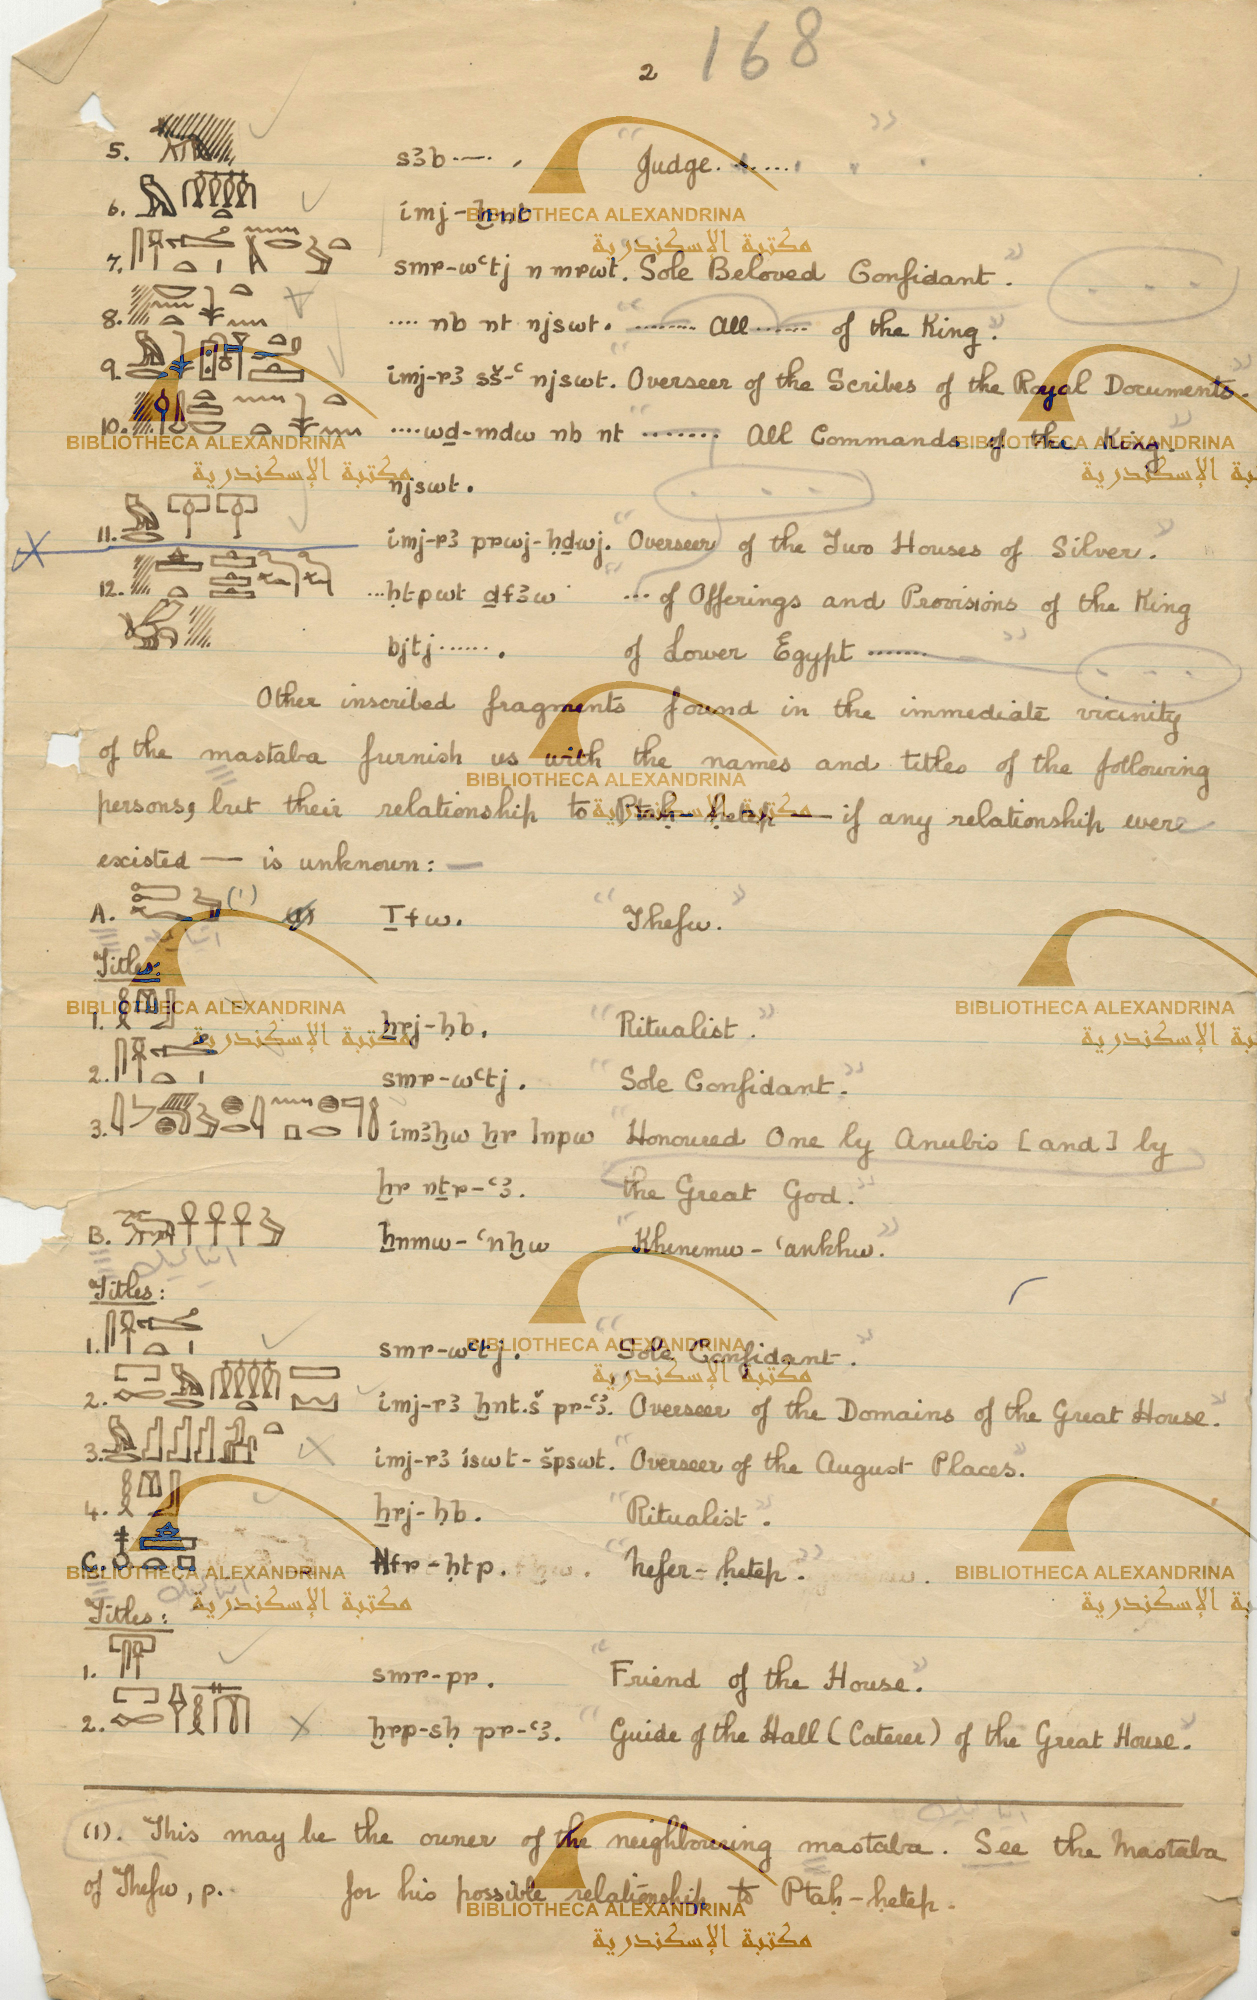 168
2
5. sȝb ...... , "Judge. ......"
6. imj-ḫnt
7. smr-wꜥtj n mrwt. "Sole Beloved Confidant".
8. .... nb nt njswt. "........ All ....... of the King."
9. imj-rȝ sš-ꜥ njswt. "Overseer of the Scribes of the Royal Documents".
10. ....wḏ-mdw nb nt "........ All Commands of the King."
njswt.
11. imj-rȝ prwj-ḥḏwj. "Overseer of the Two Houses of Silver".
12. ...ḥtpwt ḏfȝw "... of Offerings and Provisions of the King
bjtj ....... of Lower Egypt ........"
Other inscribed fragments found in the immediate vicinity
of the mastaba furnish us with the names and titles of the following
persons, but their relationship to Ptaḥ-ḥetep — if any relationship were
existed — is unknown: —
A. (1) Ṯfw. "Thefw."
Titles:
1. ẖrj-ḥb. "Ritualist".
2. smr-wꜥtj. "Sole Confidant".
3. imȝḫw ḫr Inpw "Honoured One by Anubis [and] by
ḫr nṯr-ꜥȝ. the Great God."
B. ẖnmw-ꜥnḫw "Khnemw-ꜥankhw."
Titles:
1. smr-wꜥtj. "Sole Confidant".
2. imj-rȝ ḫnt.š pr-ꜥȝ. "Overseer of the Domains of the Great House".
3. imj-rȝ iswt-špswt. "Overseer of the August Places."
4. ẖrj-ḥb. "Ritualist".
C. Nfr-ḥtp. "Nefer-ḥetep."
Titles:
1. smr-pr. "Friend of the House."
2. ḫrp-sḥ pr-ꜥȝ. "Guide of the Hall (Caterer) of the Great House".
(1). This may be the owner of the neighbouring mastaba. See the Mastaba
of Thefw, p. for his possible relationship to Ptaḥ-ḥetep.
BIBLIOTHECA ALEXANDRINA
مكتبة الإسكندرية